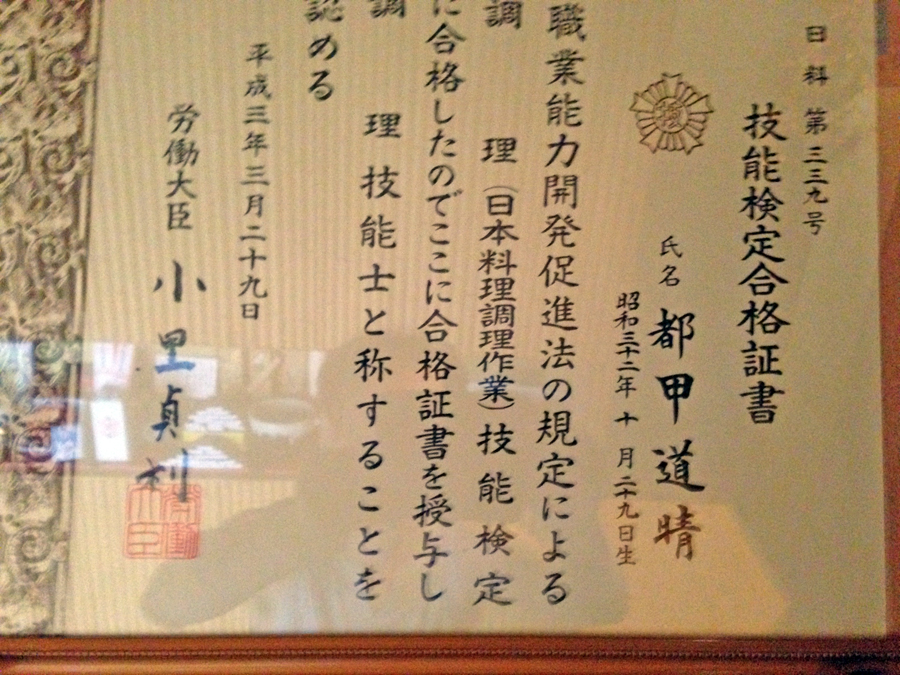 日料第三三九号
技能検定合格証書
氏名 都甲道晴
昭和三十二年十月二十九日生
職業能力開発促進法の規定による
調理(日本料理調理作業)技能検定
に合格したのでここに合格証書を授与し
調理技能士と称することを
認める
平成三年三月二十九日
労働大臣 小里貞利
労働
大臣